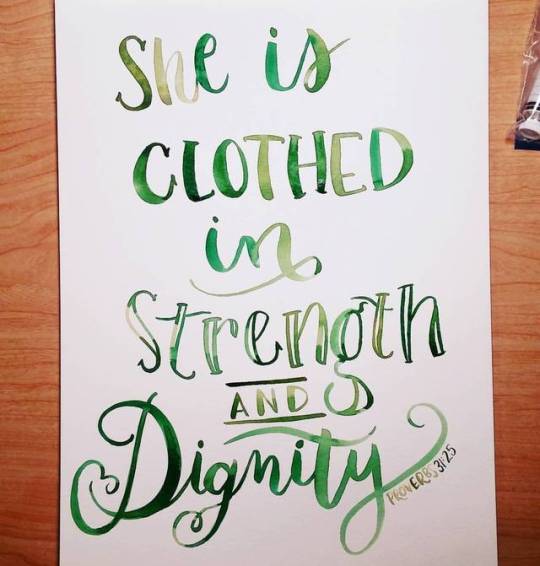 She is
CLOTHED
in
Strength
AND
Dignity
PROVERBS 31:25